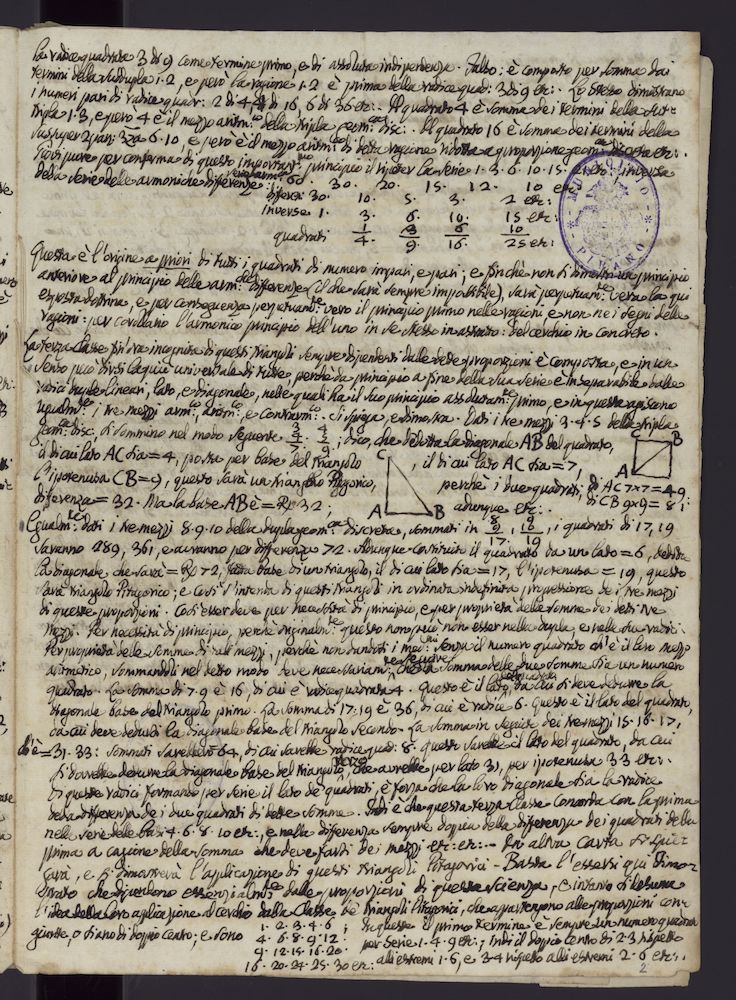 la radice quadrata 3 di 9 come termine primo, e di assoluta indipendenza. Falso: è composto per somma dai
termini della suddupla 1.2, e però la ragione 1.2 è prima della radice quad: 3 di 9 etc:. Lo stesso dimostrano
i numeri pari di radice quadr: 2 di 4, 4 di 16, 6 di 36 etc:. Il quadrato 4 è somma dei termini della sut-
tripla 1.3, e però 4 è il mezzo aritm:co della tripla geom:ca disc:. Il quadrato 16 è somma dei termini della
6.10, e però è il mezzo aritm:co di detta ragione ridotta a proporzione geom:ca discreta etc:.
per conferma di questo important:mo principio il ripeter la serie 1.3.6.10.15.21 etc: inversa
della serie delle armoniche differenze 1.60 30. 20. 15. 12. 10 etc:
differ: 30 10. 5. 3. 2 etc:
Inverse 1. 3. 6. 10. 15 etc:
quadrati 1 3 6 10
4. 9. 16. 25 etc:
MUNICIPIO
PIRANO
Questa è l'origine a priori di tutti i quadrati di numero impari, e pari; e finchè non si dimostri un principio
anteriore al principio delle arm:che differenze (il che sarà sempre impossibile), sarà perpetuam:te vera la qui
esposta dottrina, e per conseguenza perpetuam:te vero il principio primo nelle ragioni, e non nei segni delle
ragioni: per corollario l'armonico principio dell'uno in se stesso in astratto: del cerchio in concreto.
La terza Classe fin'ora incognita di questi triangoli sempre dipendenti dalle dette proporzioni è composta, e in un
senso può dirsi la più universale di tutte, perchè da principio a fine della sua serie è inseparabile dalle
radici duple lineari, lato, e diagonale, nelle quali ha il suo principio assolutam:te primo, e in questa agiscono
egualm:te i tre mezzi arm:co, aritm:co, e contrarm:co. Si spiega, e dimostra. Dati i tre mezzi 3.4.5 della tripla
geom:ca disc: si sommino nel modo seguente 3 4 / 4 5 / 7. 9. ; dico, che dedotta la diagonale AB del quadrato,
il di cui lato AC sia = 4, posta per base del triangolo C , il di cui lato AC sia = 7, C B
l'ipotenusa CB = 9, questo sarà un triangolo Pitagorico, perchè i due quadrati, di AC 7x7 = 49 A
differenza = 32. Ma la base AB è = R 32; A B adunque etc:. di CB 9x9 = 81:
Egualm:te dati i tre mezzi 8.9.10 della dupla geom:ca discreta, sommati in 8 9 / 9 10 / 17. 19 , i quadrati di 17, 19
saranno 289, 361, e avranno per differenza 72. Adunque costituito il quadrato da un lato = 6, dedotta
la diagonale che sarà = R 72, fatta base di un triangolo, il di cui lato sia = 17, l'ipotenusa = 19, questo
sarà triangolo Pitagorico; e così s'intenda di questi triangoli in ordinata indefinita progressione dei tre mezzi
di queste proporzioni. Così esser deve per necessità di principio, e per proprietà delle somme dei detti tre
mezzi. Per necessità di principio, perchè original:te questo non può non esser nella dupla, e nelle due radici.
Per proprietà delle somme di tali mezzi, perchè non dandosi i mezzi senza il numero quadrato ch'è il loro mezzo
aritmetico, sommandoli nel detto modo deve necessariam:te sempre che la somma delle due somme sia un numero
quadrato. La somma di 7.9 è 16, di cui è radice quadrata 4. Questo è il lato del quadrato, da cui si deve dedurre la
diagonale base del triangolo primo. La somma di 17.19 è 36, di cui è radice 6. Questo è il lato del quadrato,
da cui deve dedursi la diagonale base del triangolo secondo. La somma in seguito dei tre mezzi 15.16.17,
ch'è = 31.33: sommati sarebbero 64, di cui sarebbe radice quad: 8. Questo sarebbe il lato del quadrato, da cui
si dovrebbe dedurre la diagonale base del triangolo terzo, che avrebbe per lato 31, per ipotenusa 33 etc:.
Di queste radici formando per serie il lato de' quadrati, è forza che la loro diagonale sia la radice
della differenza dei due quadrati di dette somme. Indi è che questa terza Classe concorda con la prima
nella serie delle basi 4.6.8.10 etc:, e nella differenza sempre dopia della differenza dei quadrati della
prima a cagione della somma che deve farsi dei mezzi etc: etc:. In altra Carta si
sarà, e si dimostrerà l'applicazione di questi triangoli Pitagorici. Basta l'essersi qui dimos-
trato che dipendono essenzialm:te dalle proporzioni di questa Scienza, e intanto si desuma
l'idea della loro aplicazione al cerchio dalla Classe de' triangoli Pitagorici, che appartengono alle proporzioni con-
giunte, o siano di doppio centro; e sono 1.2.3.4.6 ; In queste il primo termine è sempre un numero quadrato
4.6.8.9.12 per serie 1.4.9 etc:; Indi il doppio centro di 2.3 rispetto
9.12.15.16.20 agli estremi 1.6, e 3.4 rispetto alli estremi 2.6 etc:.
16.20.24.25.30 etc:
2